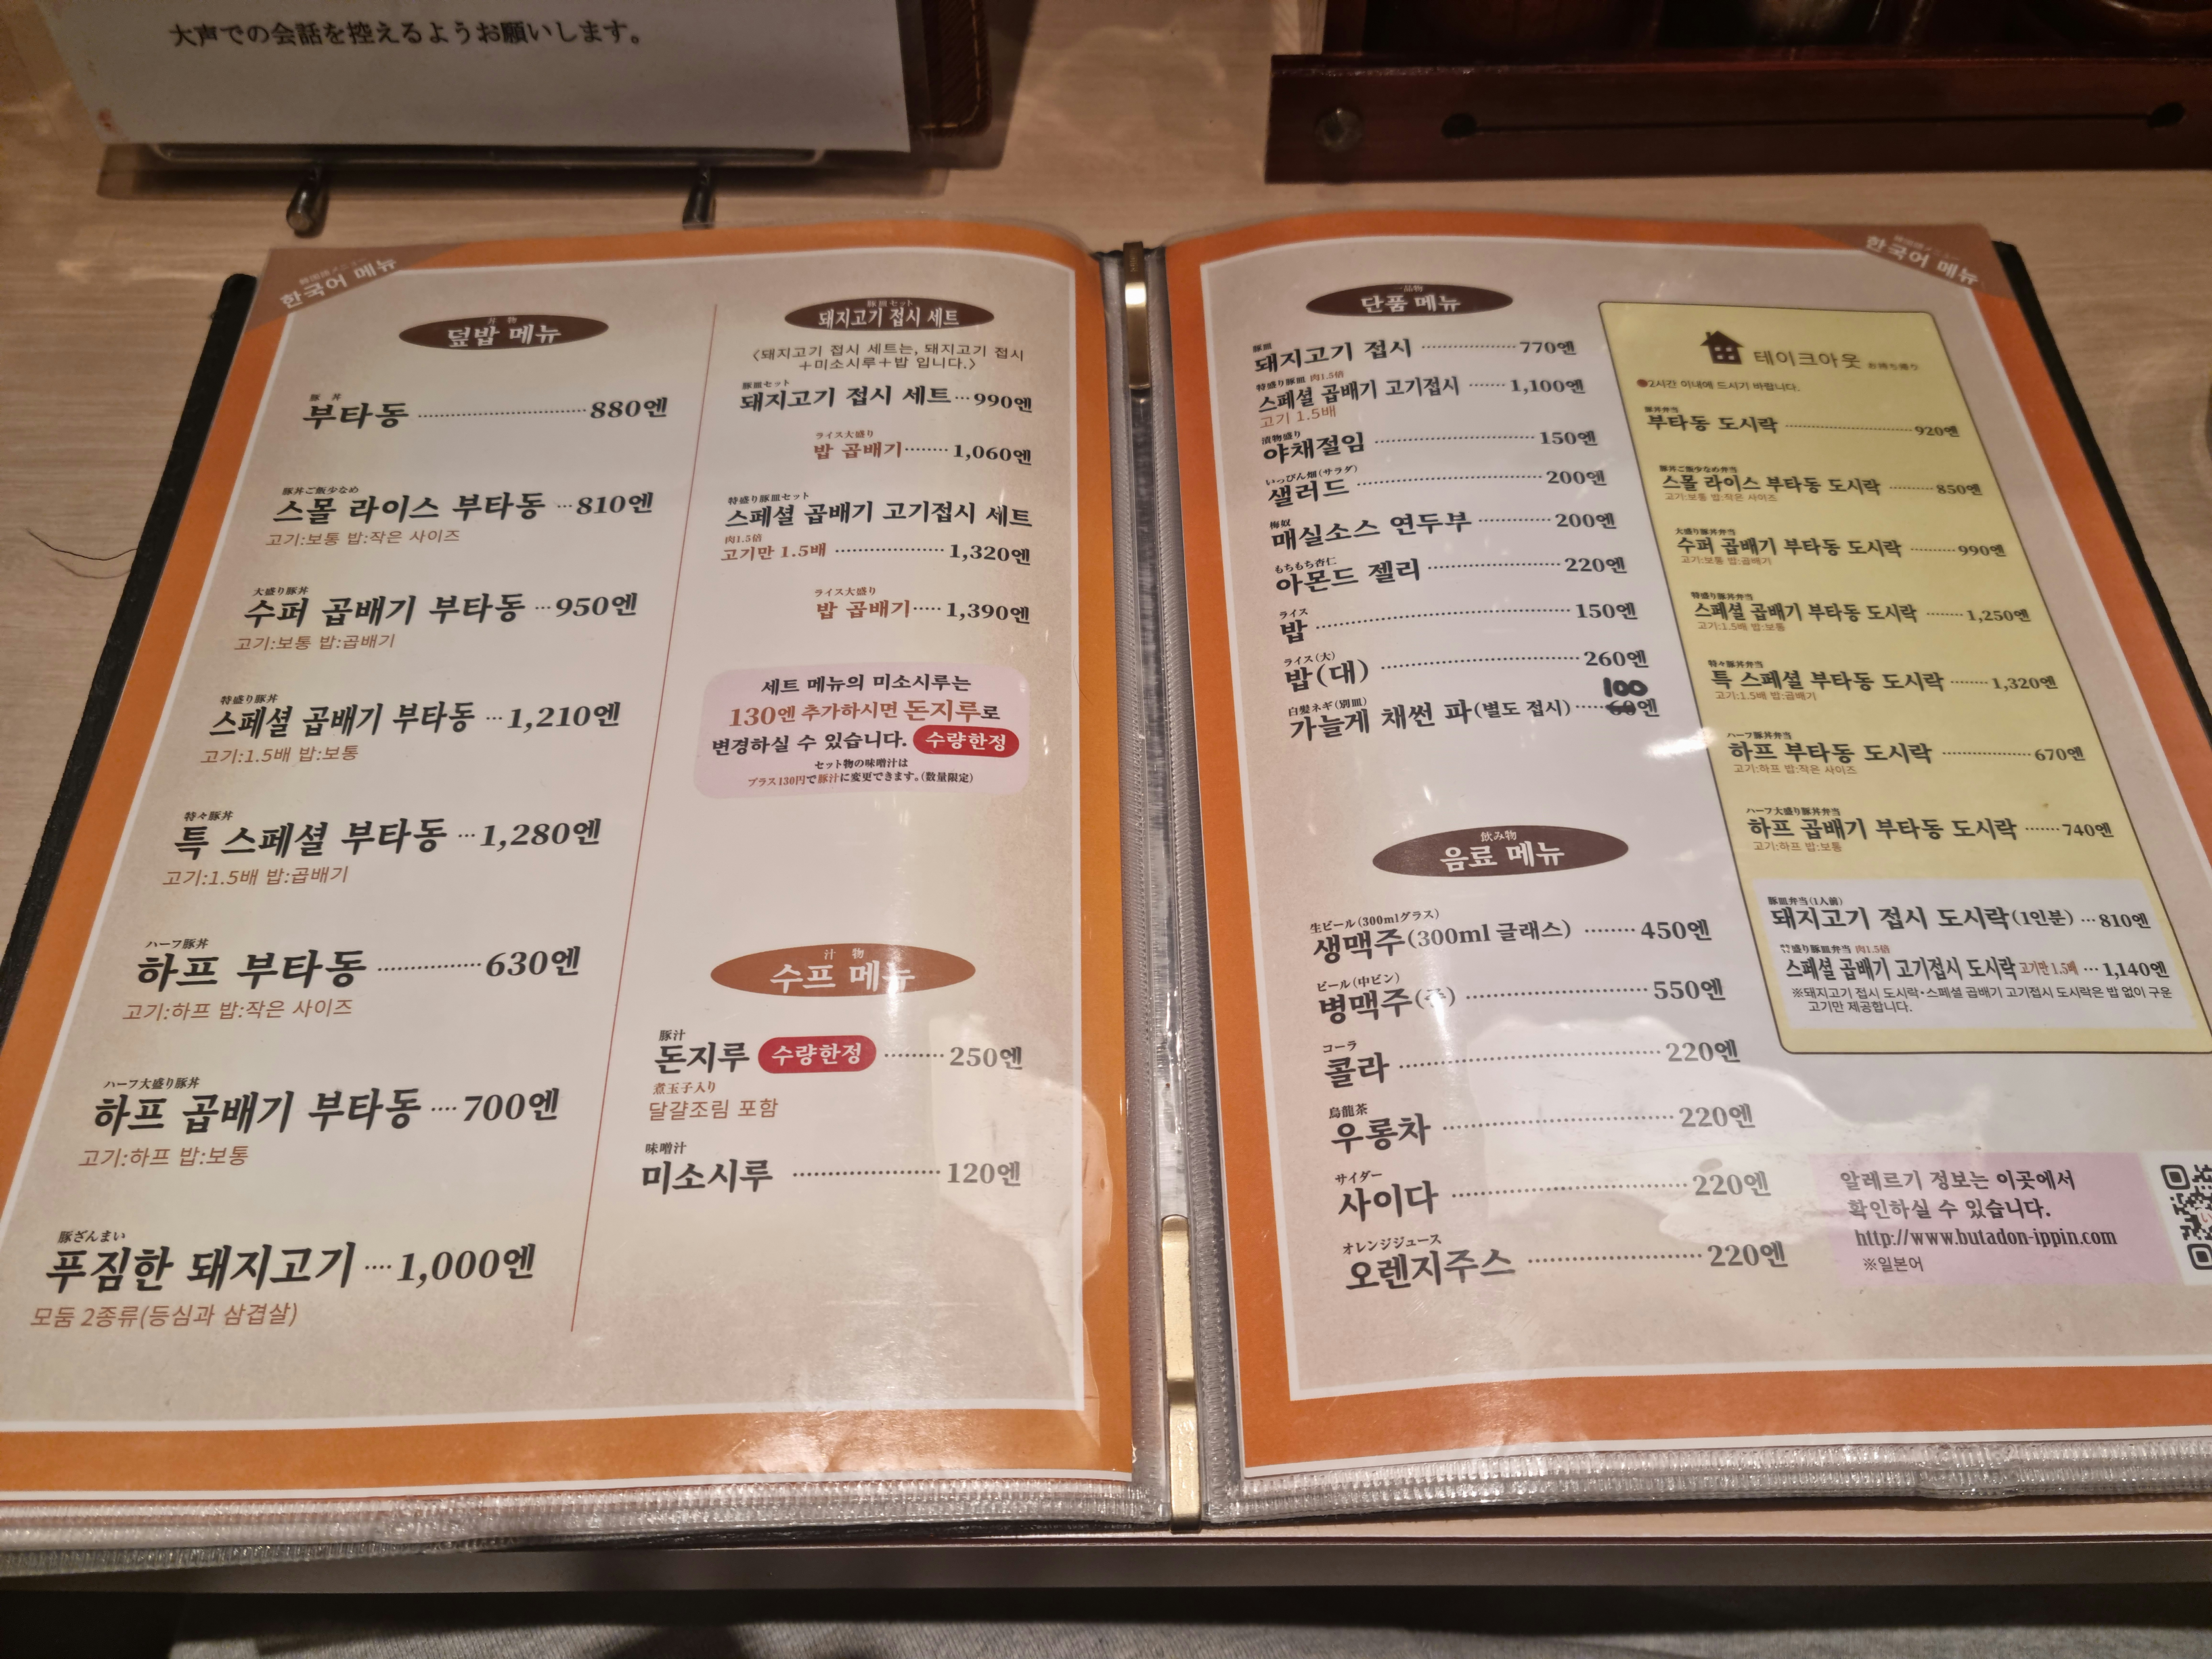 大声での会話を控えるようお願いします。
한국어 메뉴
丼 物
덮밥 메뉴
豚 丼
부타동 880엔
豚丼ご飯少なめ
스몰 라이스 부타동 810엔
고기:보통 밥:작은 사이즈
大盛り豚丼
수퍼 곱배기 부타동 950엔
고기:보통 밥:곱배기
特盛り豚丼
스페셜 곱배기 부타동 1,210엔
고기:1.5배 밥:보통
特々豚丼
특 스페셜 부타동 1,280엔
고기:1.5배 밥:곱배기
ハーフ豚丼
하프 부타동 630엔
고기:하프 밥:작은 사이즈
ハーフ大盛り豚丼
하프 곱배기 부타동 700엔
고기:하프 밥:보통
豚ざんまい
푸짐한 돼지고기 1,000엔
모둠 2종류(등심과 삼겹살)
豚皿セット
돼지고기 접시 세트
〈돼지고기 접시 세트는, 돼지고기 접시
+미소시루+밥 입니다.〉
豚皿セット
돼지고기 접시 세트 990엔
ライス大盛り
밥 곱배기 1,060엔
特盛り豚皿セット
스페셜 곱배기 고기접시 세트
肉1.5倍
고기만 1.5배 1,320엔
ライス大盛り
밥 곱배기 1,390엔
세트 메뉴의 미소시루는
130엔 추가하시면 돈지루로
변경하실 수 있습니다. 수량한정
セット物の味噌汁は
プラス130円で豚汁に変更できます。(数量限定)
汁 物
수프 메뉴
豚汁
돈지루 수량한정 250엔
煮玉子入り
달걀조림 포함
味噌汁
미소시루 120엔
한국어 메뉴
一品物
단품 메뉴
豚皿
돼지고기 접시 770엔
特盛り豚皿 肉1.5倍
스페셜 곱배기 고기접시 1,100엔
고기 1.5배
漬物盛り
야채절임 150엔
いっぴん畑(サラダ)
샐러드 200엔
梅奴
매실소스 연두부 200엔
もちもち杏仁
아몬드 젤리 220엔
ライス
밥 150엔
ライス(大)
밥(대) 260엔
100
白髪ネギ(別皿)
가늘게 채썬 파(별도 접시) 60엔
飲み物
음료 메뉴
生ビール(300mlグラス)
생맥주(300ml 글래스) 450엔
ビール(中ビン)
병맥주(중) 550엔
コーラ
콜라 220엔
烏龍茶
우롱차 220엔
サイダー
사이다 220엔
オレンジジュース
오렌지주스 220엔
테이크아웃 お持ち帰り
●2시간 이내에 드시기 바랍니다.
豚丼弁当
부타동 도시락 920엔
豚丼ご飯少なめ弁当
스몰 라이스 부타동 도시락 850엔
고기:보통 밥:작은 사이즈
大盛り豚丼弁当
수퍼 곱배기 부타동 도시락 990엔
고기:보통 밥:곱배기
特盛り豚丼弁当
스페셜 곱배기 부타동 도시락 1,250엔
고기:1.5배 밥:보통
特々豚丼弁当
특 스페셜 부타동 도시락 1,320엔
고기:1.5배 밥:곱배기
ハーフ豚丼弁当
하프 부타동 도시락 670엔
고기:하프 밥:작은 사이즈
ハーフ大盛り豚丼弁当
하프 곱배기 부타동 도시락 740엔
고기:하프 밥:보통
豚皿弁当(1人前)
돼지고기 접시 도시락(1인분) 810엔
特盛り豚皿弁当 肉1.5倍
스페셜 곱배기 고기접시 도시락 고기만 1.5배 1,140엔
※돼지고기 접시 도시락・스페셜 곱배기 고기접시 도시락은 밥 없이 구운
고기만 제공합니다.
알레르기 정보는 이곳에서
확인하실 수 있습니다.
http://www.butadon-ippin.com
※일본어